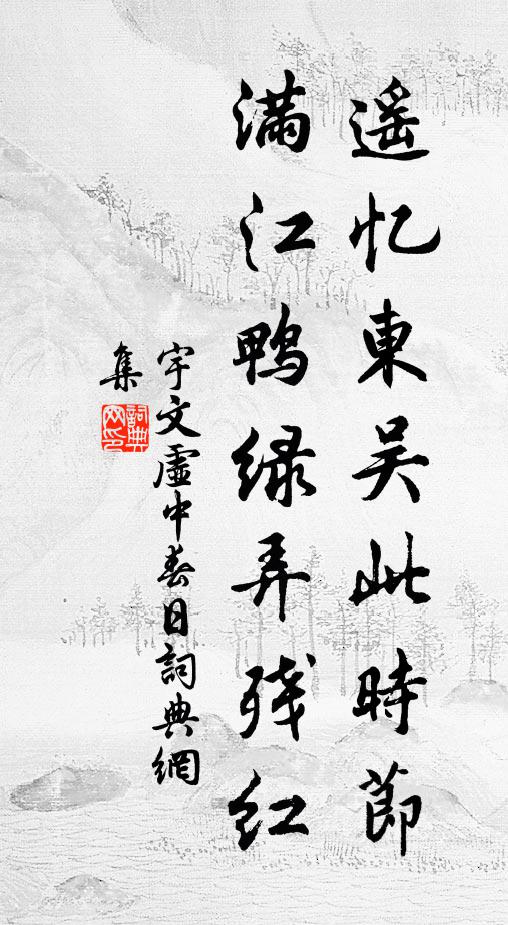 遥忆東吴此時節
满江鴨绿弄残红
宇文虛中春日詞典網
集
詞典
网印